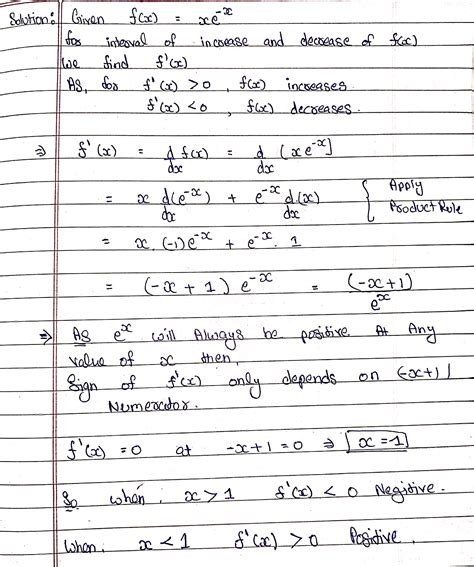 Solution: Given f(x) = xe^-x
for interval of increase and decrease of f(x)
we find f'(x)
As, for f'(x) > 0, f(x) increases.
f'(x) < 0, f(x) decreases.
⇒ f'(x) = d/dx f(x) = d/dx [xe^-x]
= x d(e^-x)/dx + e^-x d(x)/dx { Apply Product Rule
= x.(-1)e^-x + e^-x. 1
= (-x + 1) e^-x = (-x+1)/e^x
⇒ As e^x will Always be positive At Any
value of x then,
Sign of f'(x) only depends on (-x+1)
Numerator.
f'(x) = 0 at -x+1 = 0 ⇒ x = 1
So when, x > 1 f'(x) < 0 Negitive.
When. x < 1 f'(x) > 0 Positive.